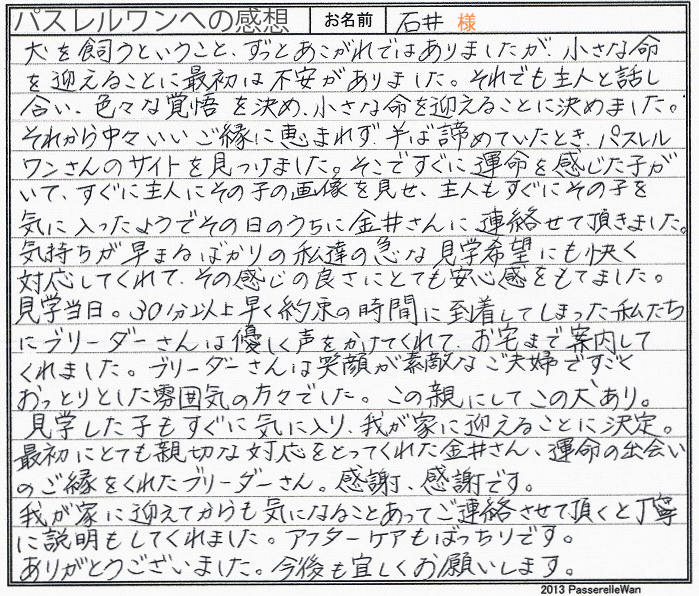 パスレルワンへの感想 お名前 石井 様
犬を飼うということ、ずっとあこがれではありましたが、小さな命
を迎えることに最初は不安がありました。それでも主人と話し
合い、色々な覚悟を決め、小さな命を迎えることに決めました。
それから中々いいご縁に恵まれず、半ば諦めていたとき、パスレル
ワンさんのサイトを見つけました。そこですぐに運命を感じた子が
いて、すぐに主人にその子の画像を見せ、主人もすぐにその子を
気に入ったようでその日のうちに金井さんに連絡せて頂きました。
気持ちが早まるばかりの私達の急な見学希望にも快く
対応してくれて、その感じの良さにとても安心感をもてました。
見学当日。30分以上早く約束の時間に到着してしまった私たち
にブリーダーさんは優しく声をかけてくれて、お宅まで案内して
くれました。ブリーダーさんは笑顔が素敵なご夫婦ですごく
おっとりとした雰囲気の方々でした。この親にしてこの犬あり。
見学した子もすぐに気に入り、我が家に迎えることに決定。
最初にとても親切な対応をとってくれた金井さん、運命の出会い
のご縁をくれたブリーダーさん。感謝、感謝です。
我が家に迎えてからも気になることあってご連絡させて頂くと丁寧
に説明もしてくれました。アフターケアもばっちりです。
ありがとうございました。今後も宜しくお願いします。
2013 PasserelleWan